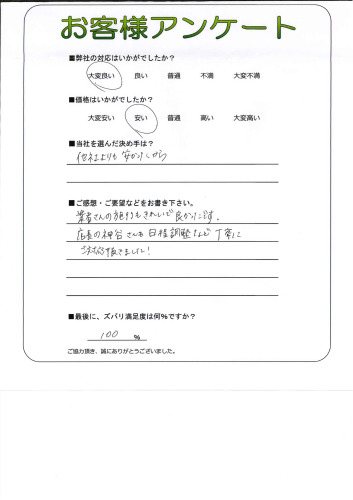 お客様アンケート
■弊社の対応はいかがでしたか？
大変良い 良い 普通 不満 大変不満
■価格はいかがでしたか？
大変安い 安い 普通 高い 大変高い
■当社を選んだ決め手は？
他社よりも安かったから
■ご感想・ご要望などをお書き下さい。
業者さんの施工もきれいで良かったです。
店長の神谷さんも日程調整など丁寧に
ご対応頂きました！
■最後に、ズバリ満足度は何％ですか？
100 ％
ご協力頂き、誠にありがとうございました。